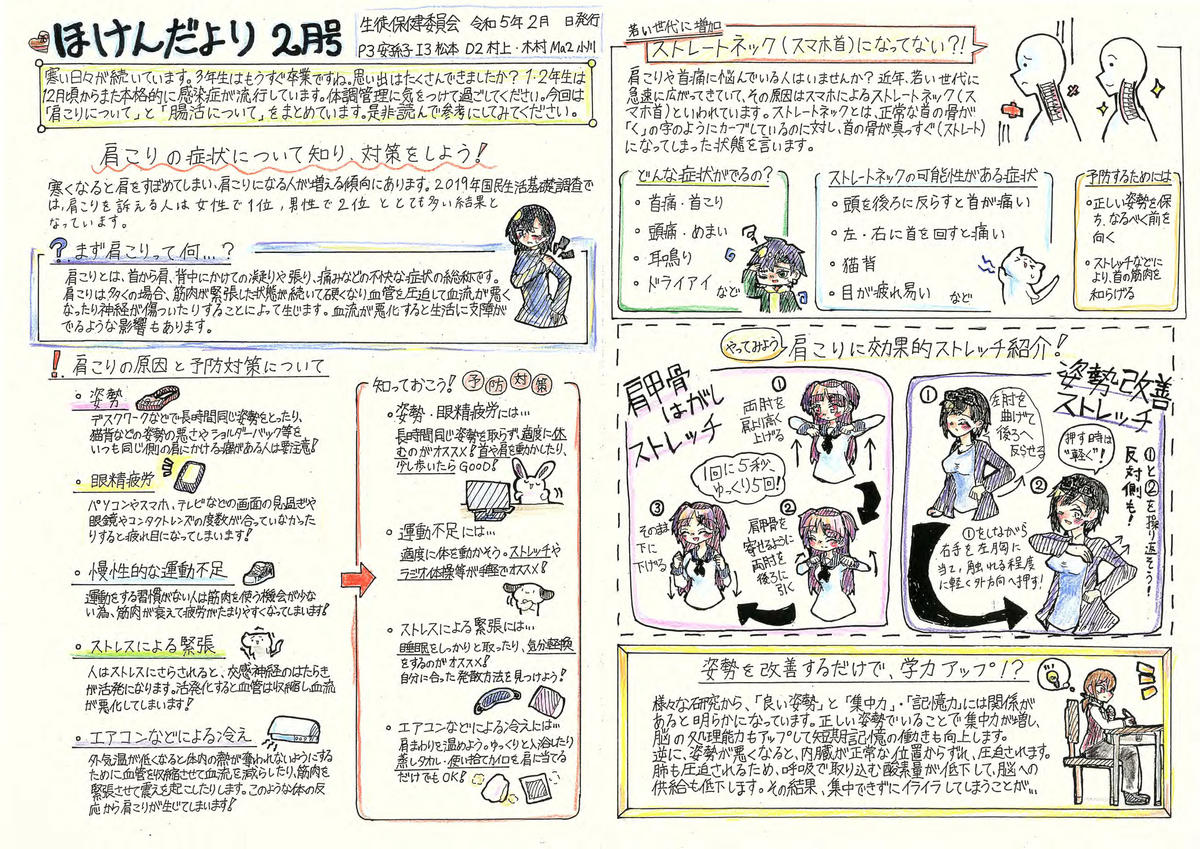 ほけんだより 2月号
生徒保健委員会 令和5年2月 日発行
P3 安孫子 I3 松本 D2 村上・木村 Ma2 小川
寒い日々が続いています。3年生はもうすぐ卒業ですね。思い出はたくさんできましたか？ 1・2年生は
12月頃からまた本格的に感染症が流行しています。体調管理に気をつけて過ごしてください。今回は
「肩こりについて」と「腸活について」をまとめています。是非読んで参考にしてみてください。
肩こりの症状について知り、対策をしよう！
寒くなると肩をすぼめてしまい、肩こりになる人が増える傾向にあります。2019年国民生活基礎調査で
は、肩こりを訴える人は女性で1位，男性で2位ととても多い結果と
なっています。
? まず肩こりって何…？
肩こりとは、首から肩、背中にかけての凝りや張り、痛みなどの不快な症状の総称です。
肩こりは多くの場合、筋肉が緊張した状態が続いて硬くなり血管を圧迫して血流が悪く
なったり神経が傷ついたりすることによって生じます。血流が悪化すると生活に支障が
でるような影響もあります。
! 肩こりの原因と予防対策について
• 姿勢
デスクワークなどで長時間同じ姿勢をとったり、
猫背などの姿勢の悪さやショルダーバック等を
いつも同じ側の肩にかける癖がある人は要注意！
• 眼精疲労
パソコンやスマホ、テレビなどの画面の見過ぎや
眼鏡やコンタクトレンズの度数が合っていなかった
りすると疲れ目になってしまいます！
• 慢性的な運動不足
運動をする習慣がない人は筋肉を使う機会が少な
い為、筋肉が衰えて疲労がたまりやすくなってしまいます！
• ストレスによる緊張
人はストレスにさらされると、交感神経のはたらき
が活発になります。活発化すると血管は収縮し血流
が悪化してしまいます！
• エアコンなどによる冷え
外気温が低くなると体内の熱が奪われないようにする
ために血管を収縮させて血流を減らしたり、筋肉を
緊張させて震えを起こしたりします。このような体の反
応から肩こりが生じてしまいます！
知っておこう！ 予防対策
• 姿勢・眼精疲労には…
長時間同じ姿勢を取らず、適度に休
むのがオススメ！首や肩を動かしたり、
少し歩いたらGOOD！
• 運動不足には…
適度に体を動かそう。ストレッチや
ラジオ体操等が手軽でオススメ！
• ストレスによる緊張には…
睡眠をしっかりと取ったり、気分転換
をするのがオススメ！
自分に合った発散方法を見つけよう！
• エアコンなどによる冷えには…
肩まわりを温めよう。ゆっくりと入浴したり
蒸しタオル・使い捨てカイロを肩に当てる
だけでもOK！
若い世代に増加
ストレートネック(スマホ首)になってない?!
肩こりや首痛に悩んでいる人はいませんか？近年、若い世代に
急速に広がってきていて、その原因はスマホによるストレートネック(ス
マホ首)といわれています。ストレートネックとは、正常な首の骨が
「く」の字のようにカーブしているのに対し、首の骨が真っすぐ(ストレート)
になってしまった状態を言います。
どんな症状がでるの？
• 首痛・首こり
• 頭痛・めまい
• 耳鳴り
• ドライアイ など
ストレートネックの可能性がある症状
• 頭を後ろに反らすと首が痛い
• 左・右に首を回すと痛い
• 猫背
• 目が疲れ易い など
予防するためには
• 正しい姿勢を保
ち、なるべく前を
向く
• ストレッチなどに
より、首の筋肉を
和らげる
やってみよう 肩こりに効果的ストレッチ紹介！
肩甲骨
はがし
ストレッチ
①
両肘を
肩より高く
上げる
1回に5秒、
ゆっくり5回！
②
肩甲骨を
寄せるように
両肘を
後ろに
引く
③
そのまま
下に
下げる
姿勢改善
ストレッチ
①
左肘を
曲げて
後ろへ
反らせる
押す時は
"軽く"！
②
①をしながら
右手を左胸に
当て、触れる程度
に軽く外方向へ押す！
①と②を繰り返そう！
反対側も！
姿勢を改善するだけで、学力アップ!?
様々な研究から、「良い姿勢」と「集中力」・「記憶力」には関係が
あると明らかになっています。正しい姿勢でいることで集中力が増し、
脳の処理能力もアップして短期記憶の働きも向上します。
逆に、姿勢が悪くなると、内臓が正常な位置からずれ、圧迫されます。
肺も圧迫されるため、呼吸で取り込む酸素量が低下して、脳への
供給も低下します。その結果、集中できずにイライラしてしまうことが…